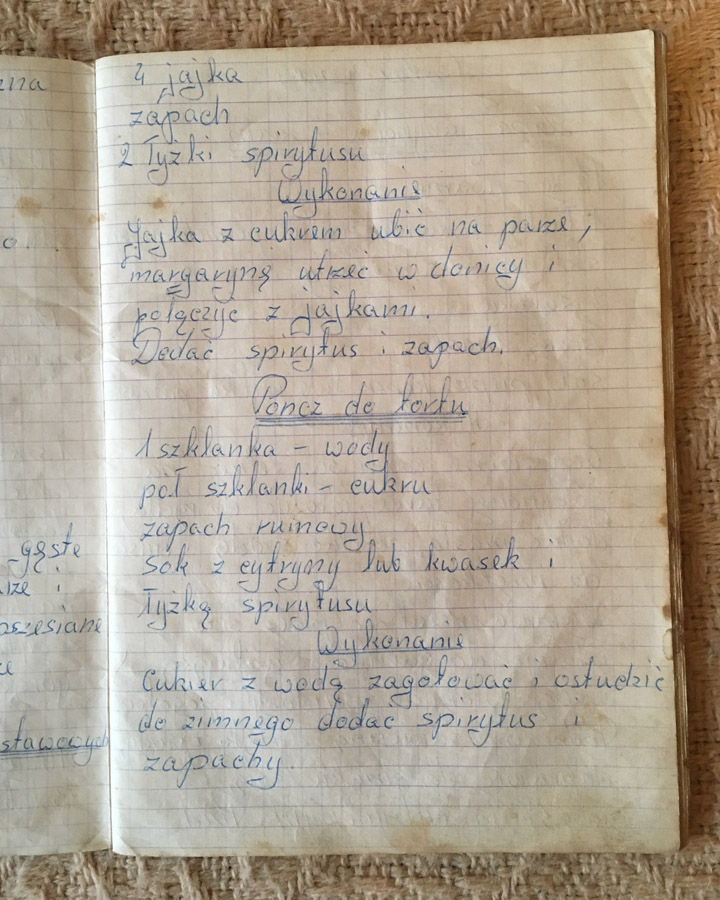 zna
o.
gęste
i
stawowych
4 jajka
zapach
2 łyżki spirytusu
Wykonanie
Jajka z cukrem ubić na parze,
margarynę utrzeć w donicy i
połączyc z jajkami.
Dodać spirytus i zapach.
Poncz do tortu
1 szklanka - wody
pół szklanki - cukru
zapach rumowy
Sok z cytryny lub kwasek i
łyżkę spirytusu
Wykonanie
Cukier z wodą zagotować i ostudzić
do zimnego dodać spirytus i
zapachy.